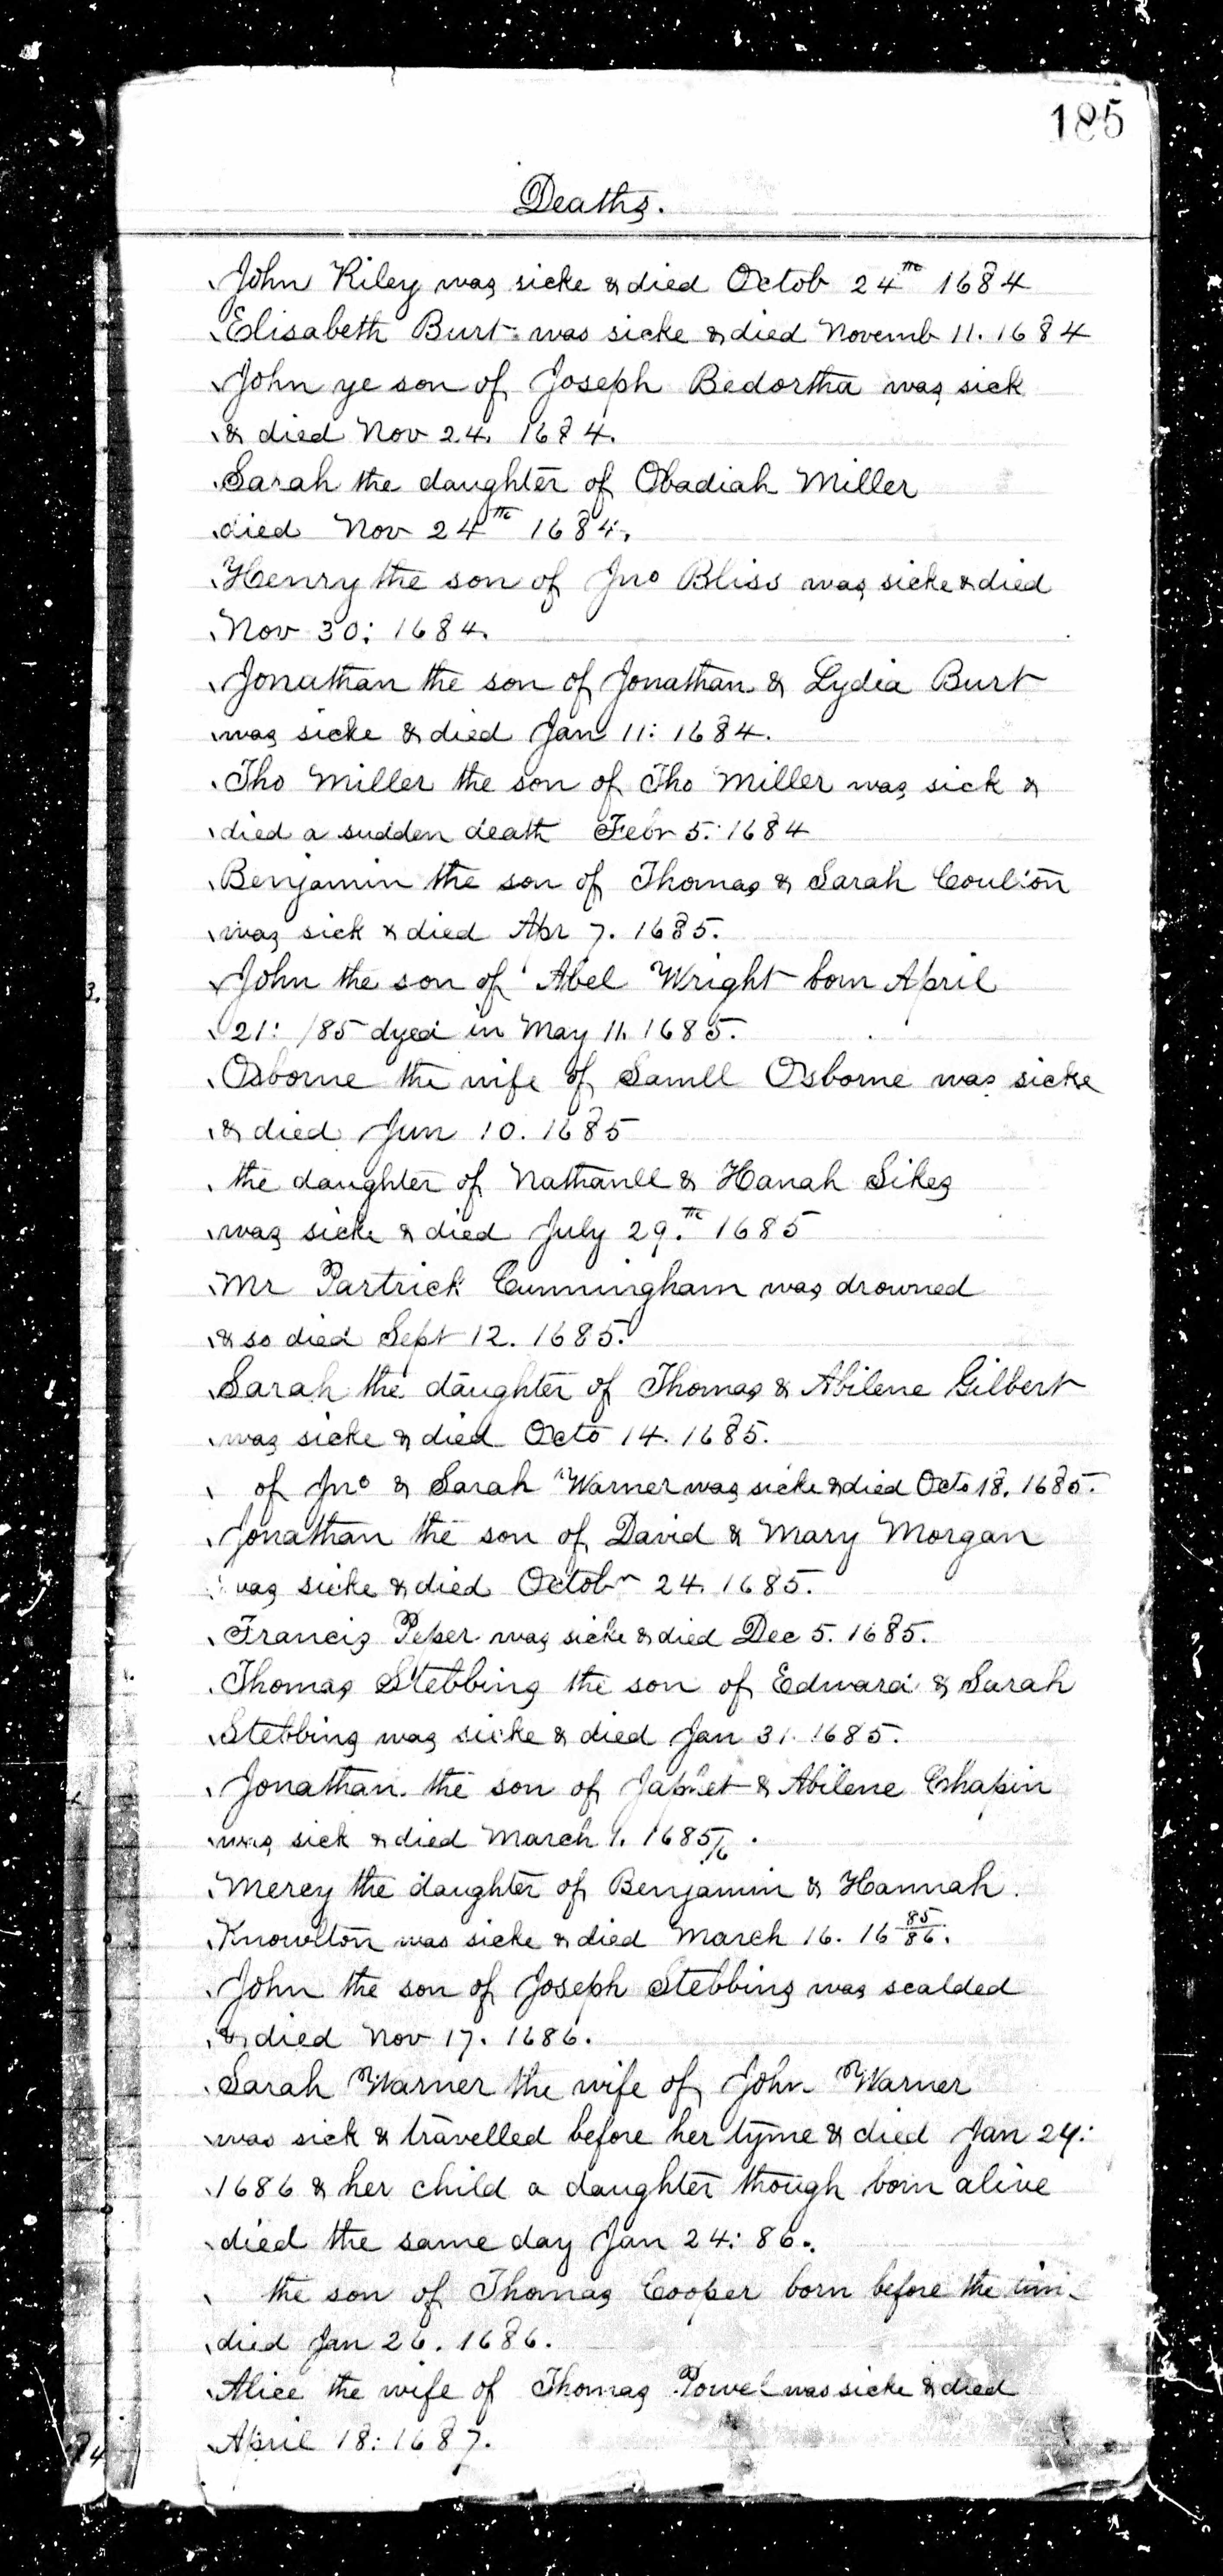 185
Deaths.
John Riley was sicke & died Octob 24th 1684
Elisabeth Burt was sicke & died Novemb 11. 1684
John ye son of Joseph Bedortha was sick
& died Nov 24. 1684.
Sarah the daughter of Obadiah Miller
died Nov 24th 1684.
Henry the son of Jno Bliss was sicke & died
Nov 30: 1684.
Jonathan the son of Jonathan & Lydia Burt
was sicke & died Jan 11: 1684.
Tho Miller the son of Tho Miller was sick &
died a sudden death Febr 5: 1684
Benjamin the son of Thomas & Sarah
was sick & died Apr 7. 1685.
John the son of Abel Wright born April
21: /85 dyed in May 11. 1685.
Osborne the wife of Samll Osborne was sicke
& died Jun 10. 1685
the daughter of Nathanll & Hanah Sikes
was sicke & died July 29.th 1685
Mr Partrick Cunningham was drowned
& so died Sept 12. 1685.
Sarah the daughter of Thomas & Abilene Gilbert
was sicke & died Octo 14. 1685.
of Jno & Sarah Warner was sicke & died Octo 18. 1685.
Jonathan the son of David & Mary Morgan
was sicke & died Octobr 24. 1685.
Francis Peper was sicke & died Dec 5. 1685.
Thomas Stebbing the son of Edward & Sarah
Stebbing was sicke & died Jan 31. 1685.
Jonathan the son of Japhet & Abilene Chapin
was sick & died March 1. 1685/6.
Mercy the daughter of Benjamin & Hannah
Knowlton was sicke & died March 16. 16 85/86.
John the son of Joseph Stebbing was scalded
& died Nov 17. 1686.
Sarah Warner the wife of John Warner
was sick & travelled before her tyme & died Jan 24:
1686 & her child a daughter though born alive
died the same day Jan 24: 86.
the son of Thomas Cooper born before the
died Jan 26. 1686.
Alice the wife of Thomas Powel was sicke & died
April 18: 1687.